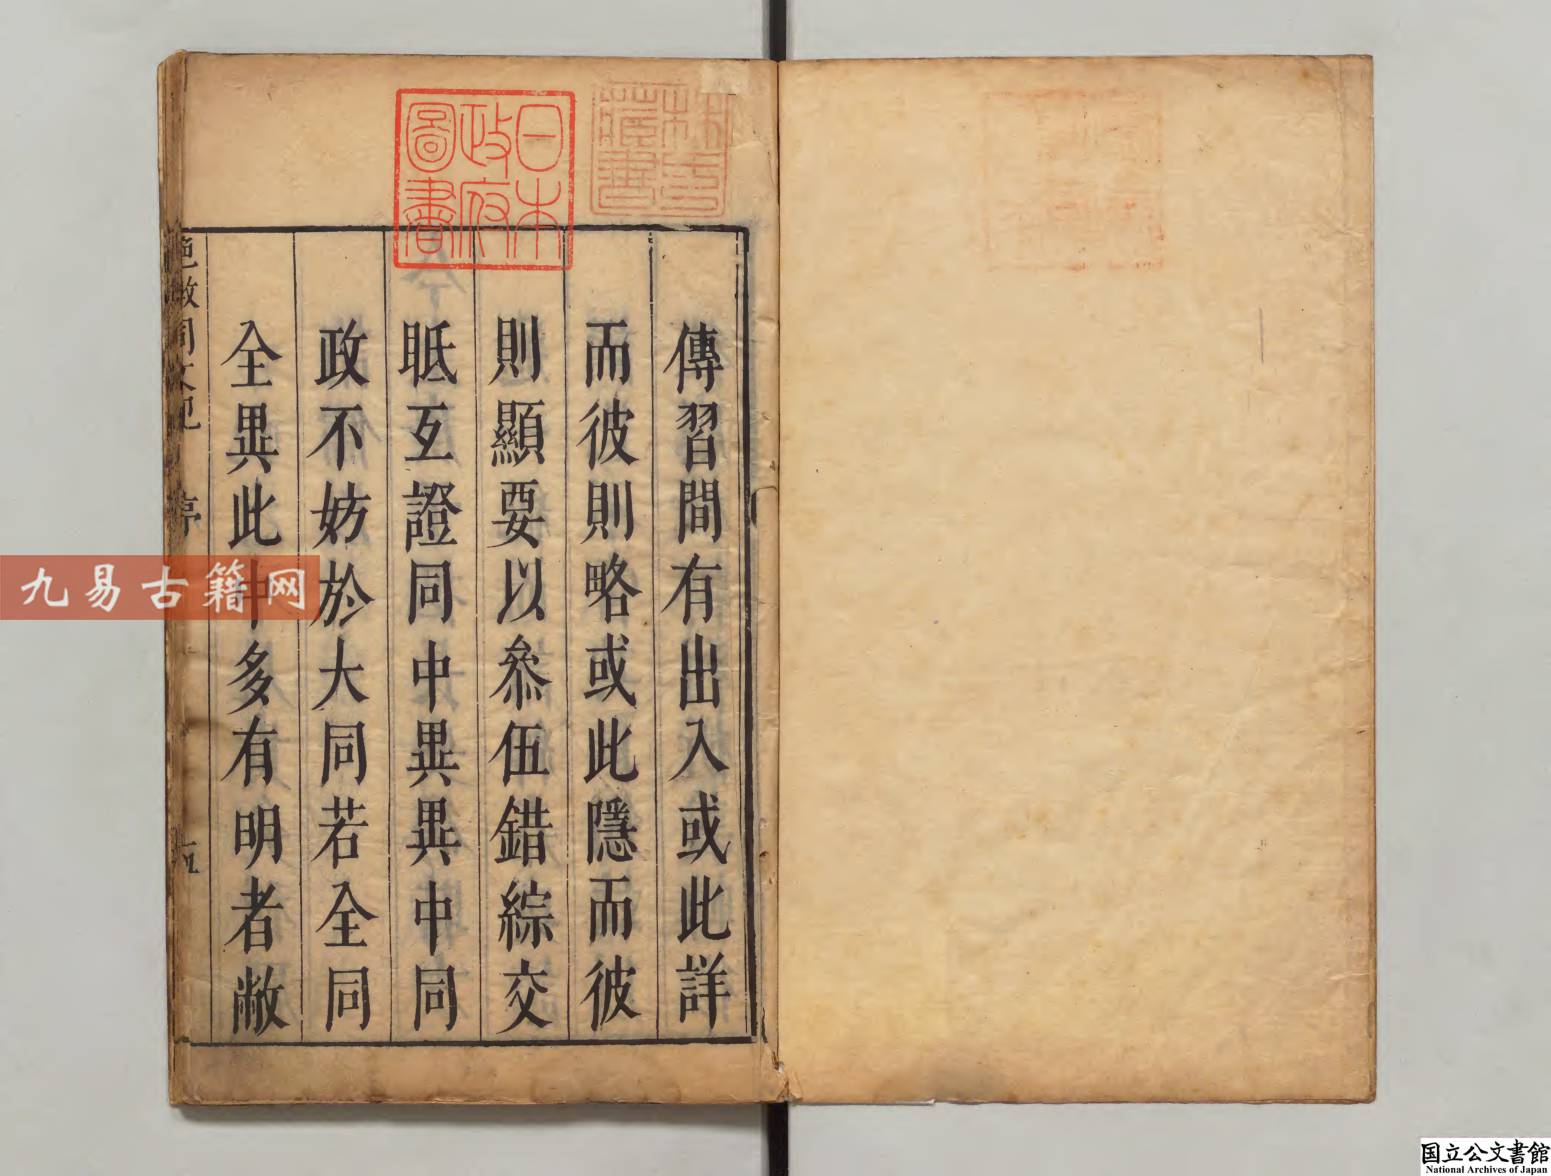 傳習間有出入或此詳
而彼則略或此隱而彼
則顯要以叅伍錯綜交
眡互證同中異異中同
政不妨於大同若全同
全異此中多有明者敝
同文
序
五
日本
政府
圖書
林氏
藏書
九易古籍网
国立公文書館
National Archives of Japan